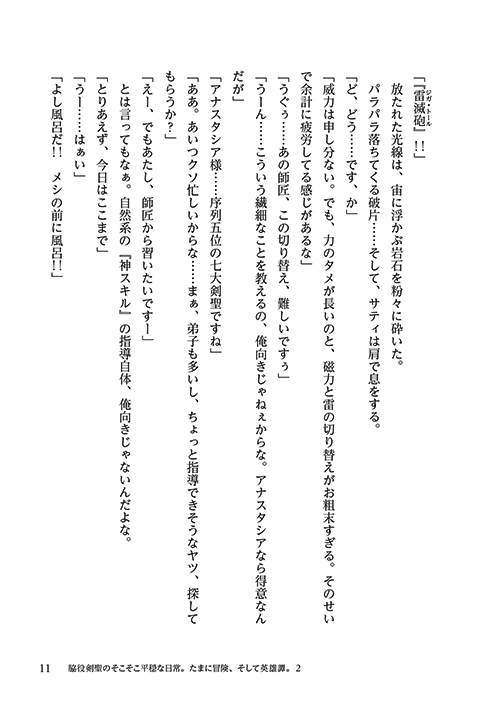 「『雷滅砲』!!」
ジガ・トール
放たれた光線は、宙に浮かぶ岩石を粉々に砕いた。
パラパラ落ちてくる破片……そして、サティは肩で息をする。
「ど、どう……です、か」
「威力は申し分ない。でも、力のタメが長いのと、磁力と雷の切り替えがお粗末すぎる。そのせい
で余計に疲労してる感じがあるな」
「うぐぅ……あの師匠、この切り替え、難しいですぅ」
「うーん……こういう繊細なことを教えるの、俺向きじゃねぇからな。アナスタシアなら得意なん
だが」
「アナスタシア様……序列五位の七大剣聖ですね」
「ああ。あいつクソ忙しいからな……まぁ、弟子も多いし、ちょっと指導できそうなヤツ、探して
もらうか?」
「えー、でもあたし、師匠から習いたいですー」
とは言ってもなぁ。自然系の『神スキル』の指導自体、俺向きじゃないんだよな。
「とりあえず、今日はここまで」
「うー……はぁい」
「よし風呂だ!! メシの前に風呂!!」
11 脇役剣聖のそこそこ平穏な日常。たまに冒険、そして英雄譚。2